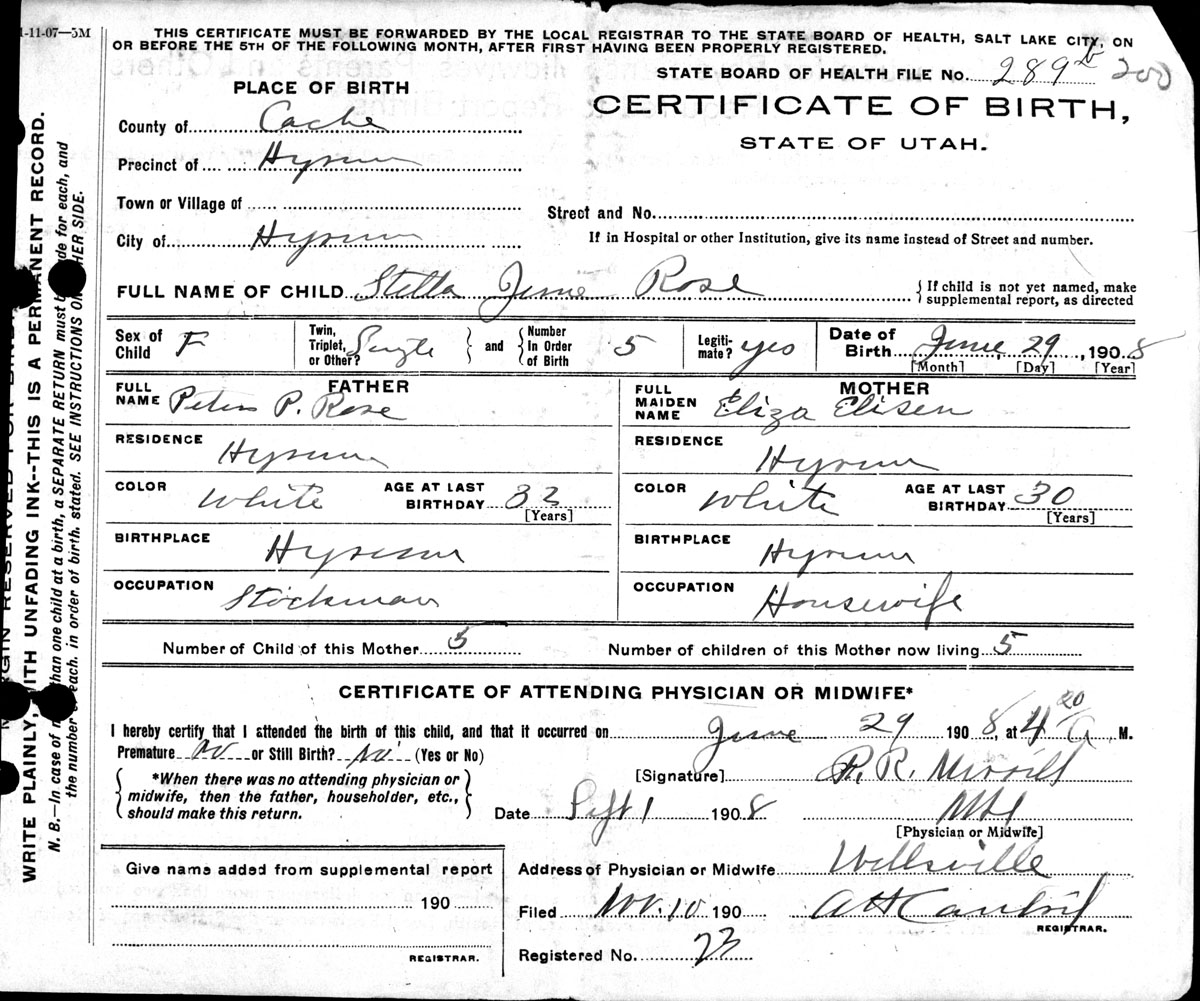 1-11-07—5M
THIS CERTIFICATE MUST BE FORWARDED BY THE LOCAL REGISTRAR TO THE STATE BOARD OF HEALTH, SALT LAKE CITY, ON
OR BEFORE THE 5TH OF THE FOLLOWING MONTH, AFTER FIRST HAVING BEEN PROPERLY REGISTERED.
STATE BOARD OF HEALTH FILE No. 289 b 200
CERTIFICATE OF BIRTH,
STATE OF UTAH.
PLACE OF BIRTH
County of Cache
Precinct of Hyrum
Town or Village of
City of Hyrum
Street and No.
If in Hospital or other Institution, give its name instead of Street and number.
FULL NAME OF CHILD Stella June Rose
If child is not yet named, make
supplemental report, as directed
Sex of Child F
Twin, Triplet, or Other? Single and Number In Order of Birth 5
Legiti-mate? yes
Date of Birth June 29, 1908
[Month] [Day] [Year]
FATHER
FULL NAME Peter P. Rose
RESIDENCE Hyrum
COLOR White AGE AT LAST BIRTHDAY 32 [Years]
BIRTHPLACE Hyrum
OCCUPATION Stockman
MOTHER
FULL MAIDEN NAME Eliza Elisen
RESIDENCE Hyrum
COLOR White AGE AT LAST BIRTHDAY 30 [Years]
BIRTHPLACE Hyrum
OCCUPATION Housewife
Number of Child of this Mother 5 Number of children of this Mother now living 5
CERTIFICATE OF ATTENDING PHYSICIAN OR MIDWIFE*
I hereby certify that I attended the birth of this child, and that it occurred on June 29 1908, at 4 20 A. M.
Premature No or Still Birth? No (Yes or No)
*When there was no attending physician or
midwife, then the father, householder, etc.,
should make this return.
[Signature] R. R. Merrill
Date Sept 1 1908 MD
[Physician or Midwife]
Address of Physician or Midwife Wellsville
Give name added from supplemental report
190
REGISTRAR.
Filed Nov. 10 190
REGISTRAR.
Registered No. 23
WRITE PLAINLY, WITH UNFADING INK--THIS IS A PERMANENT RECORD.
N. B.—In case of than one child at a birth, a SEPARATE RETURN must be for each, and
the number each, in order of birth, stated. SEE INSTRUCTIONS ON SIDE.